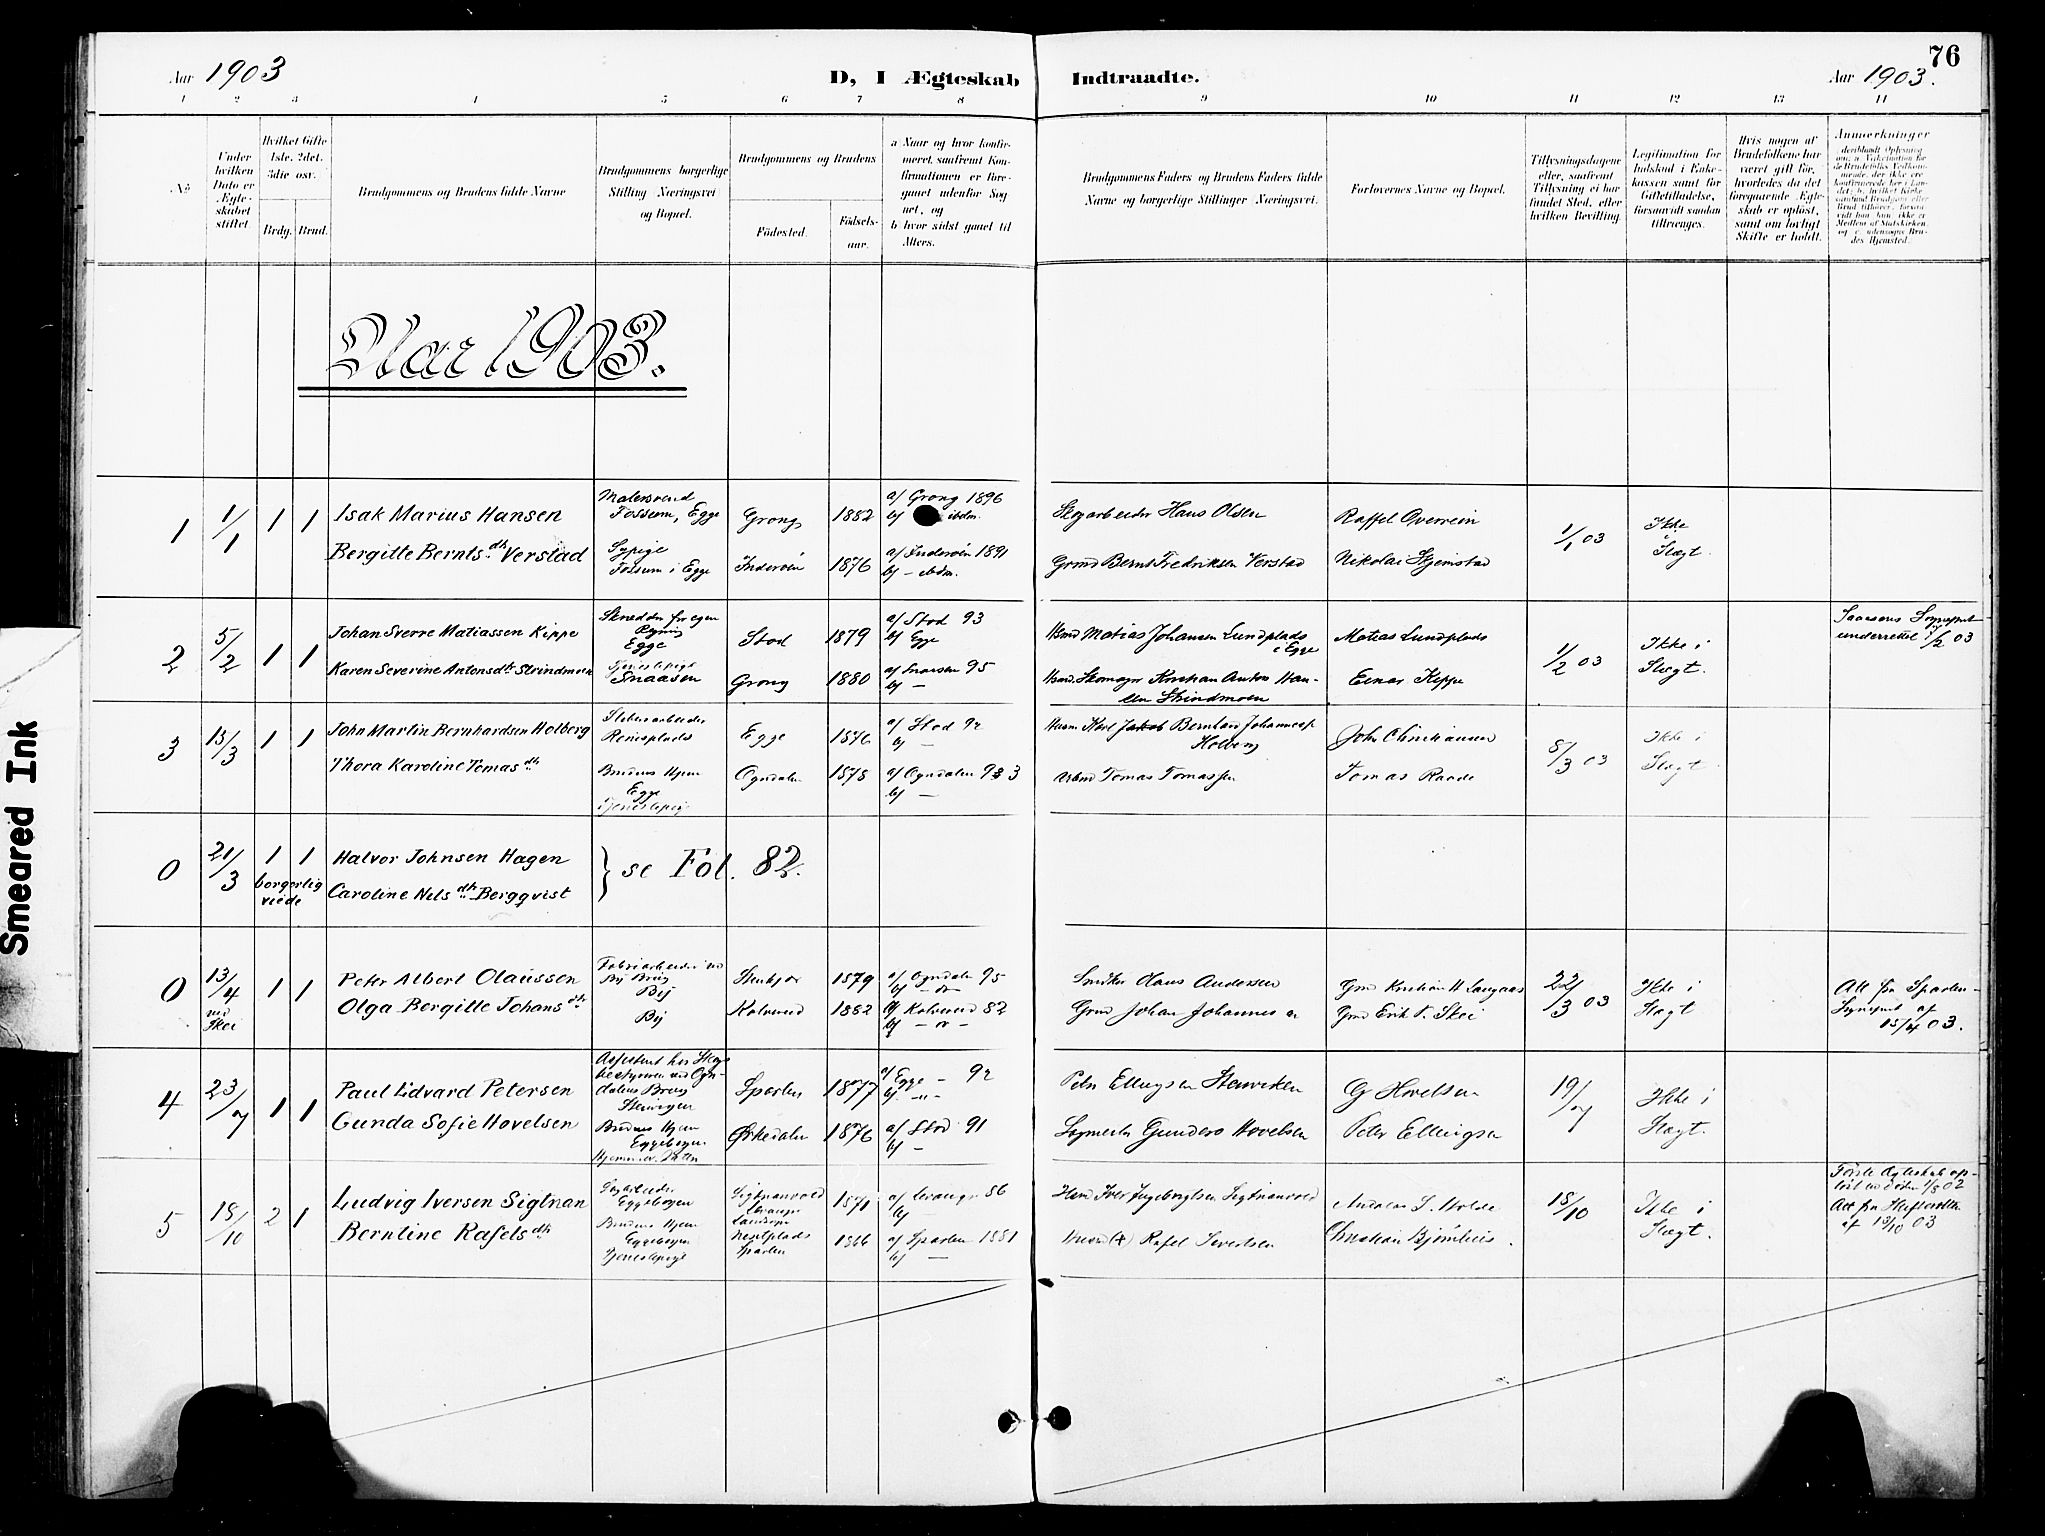 76
Aar 1903
D, I Ægteskab Indtraadte.
Aar 1903.
1 2 3 4 5 6 7 8 9 10 11 12 13 14
No
Under hvilken Dato er Ægteskabet stiftet.
Hvilket Gifte 1ste, 2det, 3die osv.
Brdg. Brud.
Brudgommens og Brudens fulde Navne
Brudgommens borgerlige Stilling Næringsvei og Bopæl.
Brudgommens og Brudens
Fødested.
Fødselsaar.
a Naar og hvor konfirmeret, saafremt Konfirmationen er foregaaet udenfor Sognet, og
b hvor sidst gaaet til Alters.
Brudgommens Faders og Brudens Faders fulde Navne og borgerlige Stillinger Næringsvei.
Forlovernes Navne og Bopæl.
Tillysningsdagene eller, saafremt Tillysning ei har fundet Sted, eller hvilken Bevilling.
Legitimation for Indskud i Enkekassen samt for Giftetilladelse, forsaavidt saadan tiltrænges.
Hvis nogen af Brudefolkene har været gift før, hvorledes da det foregaaende Ægteskab er opløst, samt om lovligt Skifte er holdt.
Anmerkninger
Aar 1903.
1 1/1 1 1 Isak Marius Hansen
Malersvend Fossum, Egge
Grong 1882
a/ Grong 1896
b/ ibdm.
Skogarbeider Hans Olsen
Raffel Overrein
1/1 03
Ikke i Slægt.
Bergitte Bernts dtr Verstad
Sypige Fossum i Egge
Inderøen 1876
a/ Inderøen 1891
b/ – ibdm.
Grmd Bernt Fredriksen Verstad
Nikolai Skjemstad
2 5/2 1 1 Johan Sverre Matiassen Kippe
Skredder for egen Regning Egge
Stod 1879
a/ Stod 93
b/ Egge
Hsmd Matias Johansen Lundplads i Egge
Matias Lundplads
1/2 03
Ikke i Slægt.
Snaasens Sognepræst underrettet 1/2 03
Karen Severine Antonsdtr Strindmoen
Tjenestepige Snaasen
Grong 1880
a/ Snaasen 95
b/ –
Hsmd. Skomager Kristian Anton Hansen Strindmoen
Einar Kippe
3 13/3 1 1 John Martin Bernhardsen Holberg
Sliberiarbeider Reinsplads
Egge 1876
a/ Stod 92
b/ –
Karl Jakob Bernhard Johannesen Holberg
John Christiansen
8/3 03
Ikke i Slægt.
Thora Karoline Tomas dtr
Brudens Hjem Egge Tjenestepige
Ogndalen 1878
a/ Ogndalen 93
b/ –
Tomas Tomassen
Tomas Raade
0 21/3 1 1 borgerlig viede
Halvor Johnsen Hagen
Caroline Nels dtr Bergqvist
} se Fol. 82.
0 13/4 ved Skei 1 1 Peter Albert Olaussen
Fabrikarbeider ved By Brug By
Stenkjær 1879
a/ Ogndalen 95
b/ – do –
Smeden Claus Andersen
22/3 03
Ikke i Slægt
Att. fra Sparbu Sognepræst af 15/4 03.
Olga Bergitte Johans dtr
By
Kolvered 1882
Kolvered 82
Grmd Johan Johannesen
Grmd Erik T. Skei
4 23/7 1 1 Paul Edvard Petersen
Assistent hos Skogbestyreren ved Ogndalens Brug
Sparbu 1877
a/ Egge – 92
b/ –"–
Peter Ellingsen Stenviken
G Hovelsen
19/7
Ikke i Slægt.
Gunda Sofie Hovelsen
Brudens Hjem Eggebogen
Ørkedalen 1876
a/ Stod 91
b/ –
Gunders Hovelsen
Peter Ellingsen
5 18/10 2 1 Ludvig Iversen Sigtnan
Eggebogen
Sigtnanvold Levanger Landsogn 1871
a/ Levanger 86
b/ –
Hsmd Iver Ingebrigtsen Sigtnanvold
Andreas S. Molde
18/10
Ikke i Slægt.
Første Ægteskab opløst ved døden 1/8 02
Att. fra Skifteretten af 13/10 03
Berntine Rafels dtr
Brudens Hjem Eggebogen Tjenestepige
Nestplads Sparbu 1866
a/ Sparbu 1881
b/ –
Husmd (+) Rafel Severtsen
Christian Bjørnlius.
Smeared Ink